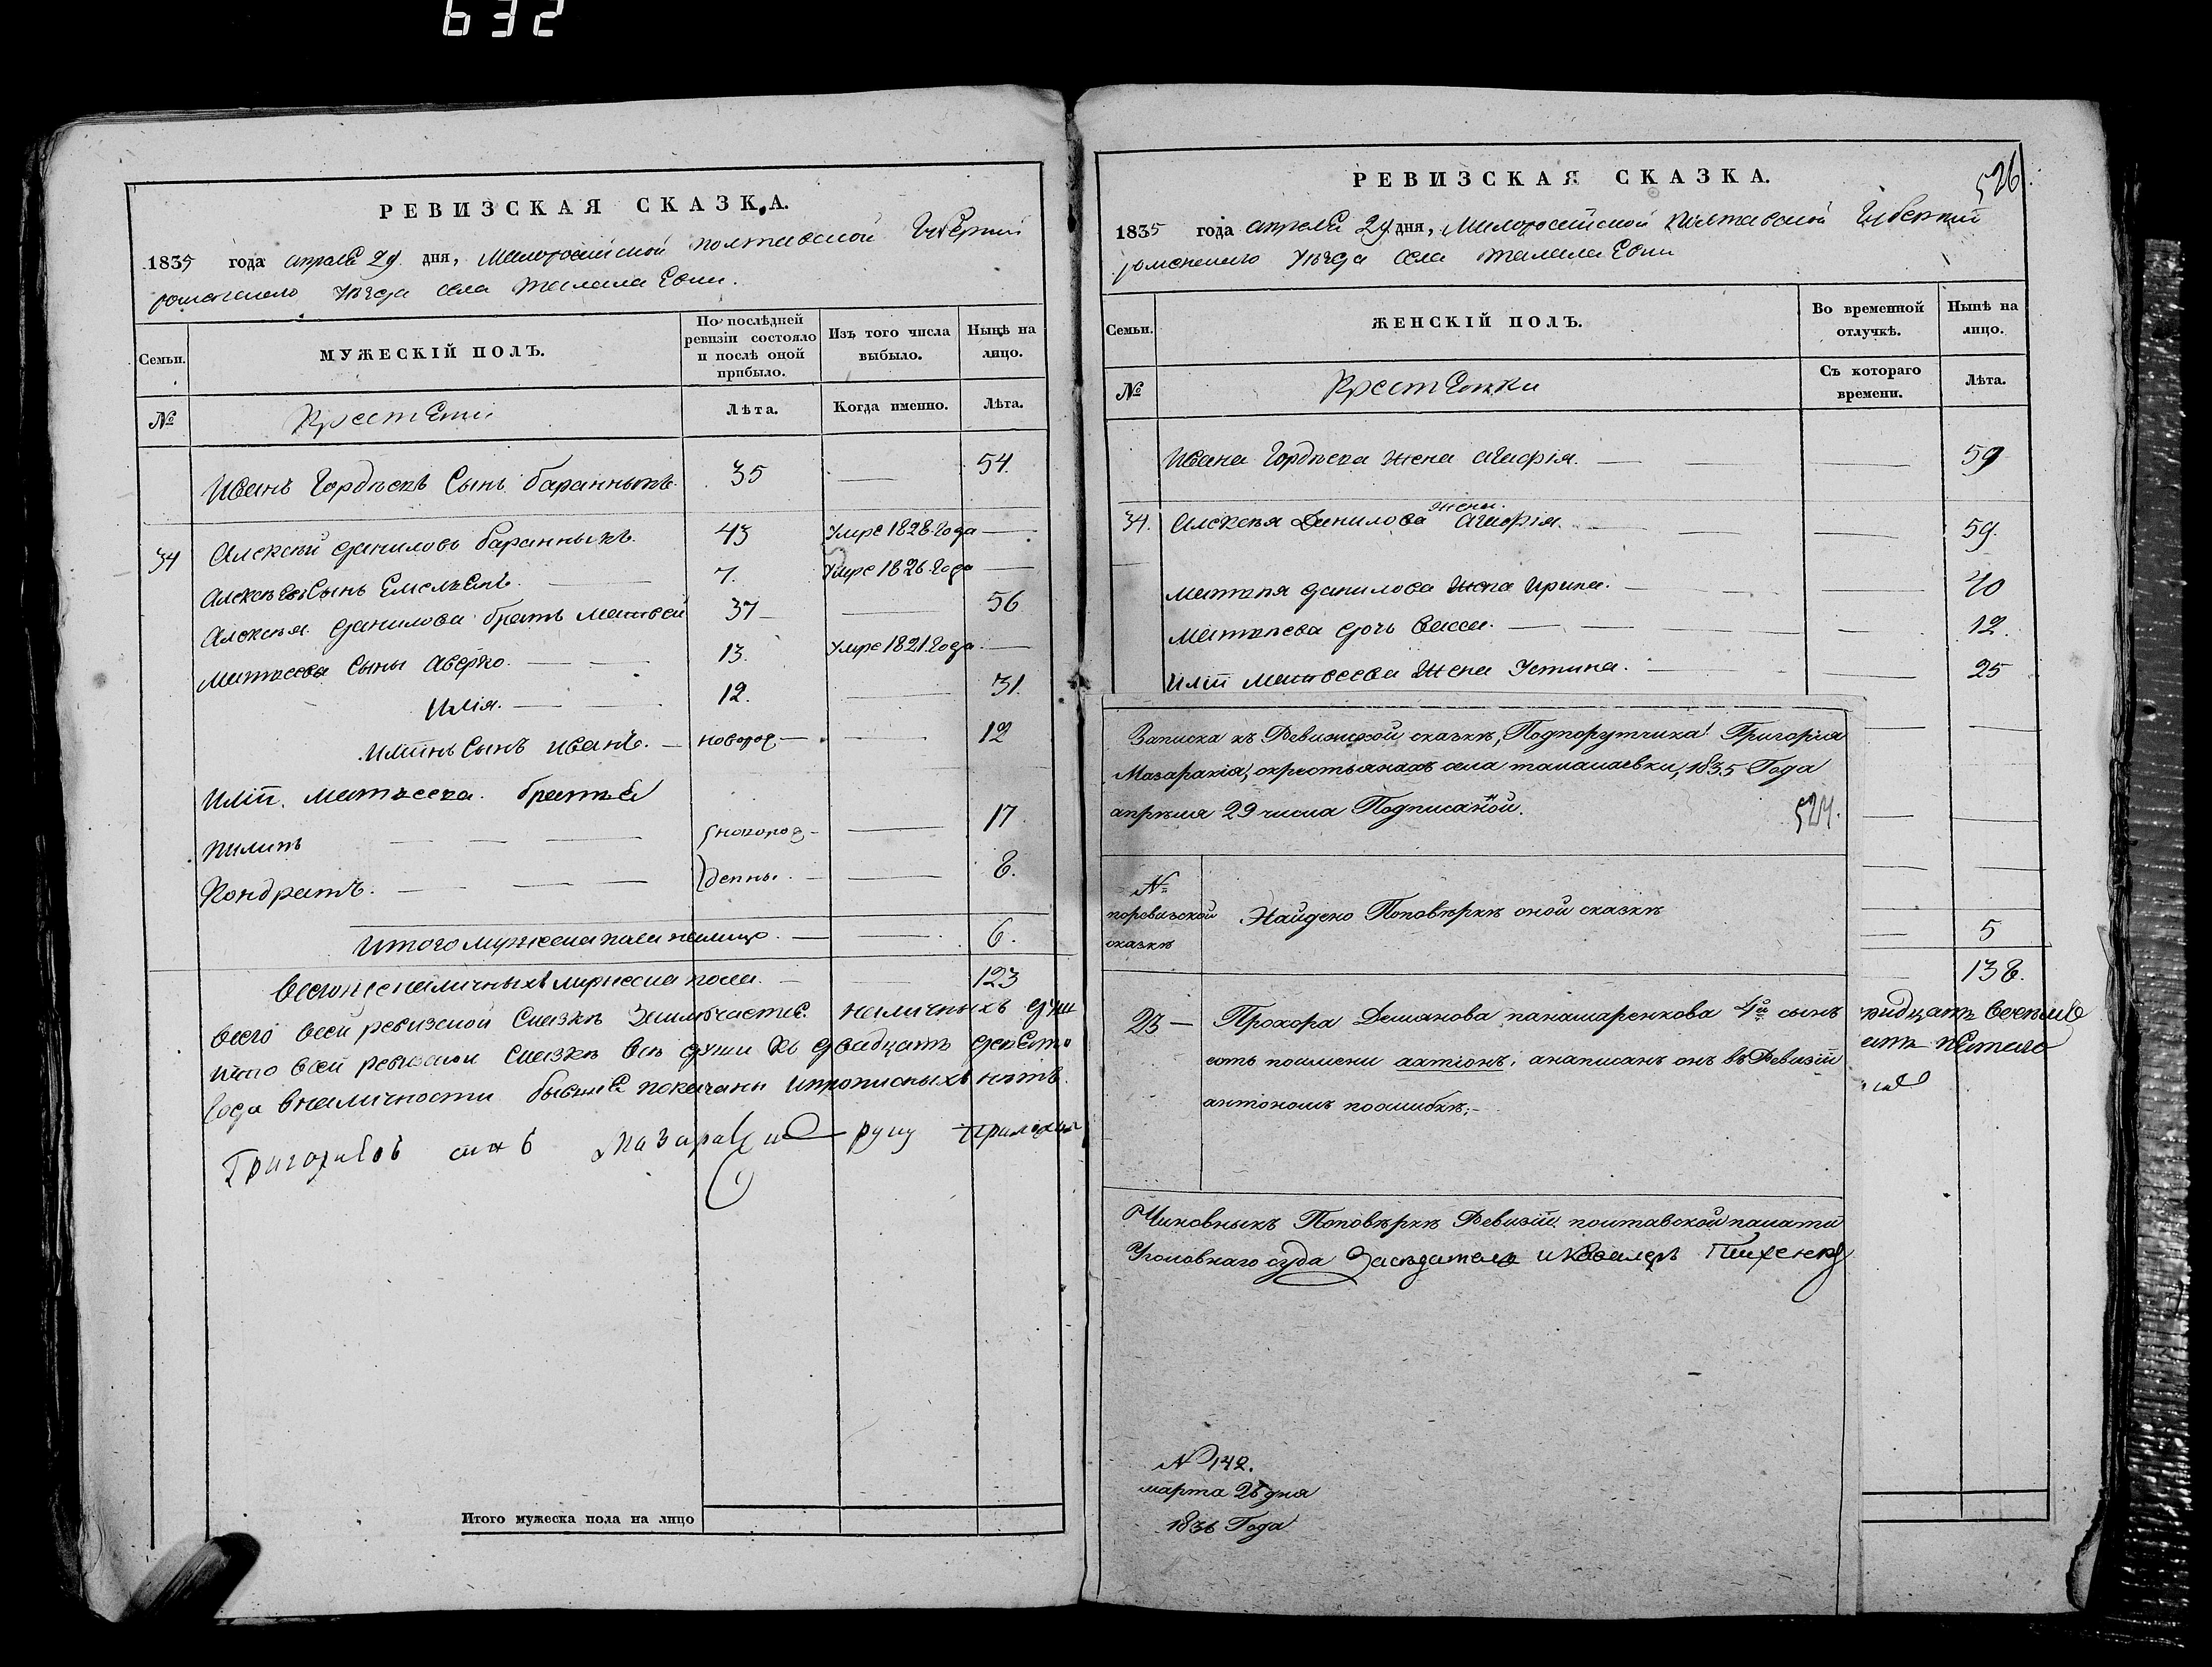 632
РЕВИЗСКАЯ СКАЗКА.
1835 года апреля 29 дня, Малоросийской полтавской Губернии
роменского уезда села талалаевки.
Семьи.
МУЖЕСКІЙ ПОЛЪ.
По послѣдней ревизіи состояло и послѣ оной прибыло.
Изъ того числа выбыло.
Нынѣ на лицо.
№
Крестьяне
Лѣта.
Когда именно.
Лѣта.
Иванъ Гордѣевъ Сынъ баранныкъ. 35 54.
34 Алексѣй даниловъ баранныкъ. 43 Умре 1828 Года
Алексѣевъ Сынъ Емельянъ. 7. Умре 1826 Года
Алексѣя данилова братъ Матвей 37 56
Матвеева Сыны Аверко. 13. Умре 1821 Года
Илія. 12. 31.
Иліинъ Сынъ иванъ. новорож 12
Иліи Матвеева братья
Пилипъ новорож 17
Кондратъ. денны. 8.
Итого мужеска пола налицо. 6.
Всего наличныхъ мужеска пола. 123
Всего в сей ревизской Сказкѣ наличныхъ душ
что в сей ревизской Сказкѣ все души къ двадцать девятое
года в наличности бывшие показаны и прописныхъ нѣтъ.
руку приложил
Итого мужеска пола на лицо
РЕВИЗСКАЯ СКАЗКА.
526
1835 года апреля 29 дня, Малоросийской полтавской Губернии
роменского уезда села талалаевки
Семьи.
ЖЕНСКІЙ ПОЛЪ.
Во временной отлучкѣ.
Нынѣ на лицо.
№
Крестьянки
Съ котораго времени.
Лѣта.
Ивана Гордѣева жена Агафія. 59
34. Алексѣя Данилова жена Агафія. 59.
Матвѣя данилова жена Ирина. 40
Матвѣева дочь Васса. 12.
Иліи Матвеева жена Устина. 25
5
138.
Записка къ Ревижской сказкѣ, Подпорутчика Григорія
Мазаракія, окрестьянахъ села талалаевки, 1835 Года
апрѣля 29 числа Подписанной.
524.
№
поревизской
сказкѣ
Найдено Поповѣркѣ оной сказкѣ
23 — Прохора Демянова панамаренкова 4й сынъ
естъ поимени актіонъ; анаписанъ онъ въ Ревизіи
антономъ поошибкѣ;
Чиновныкъ Поповѣркѣ Ревизіи полтавской палаты
Уголовнаго суда Заседатель и Кавалеръ
№ 142.
марта 26 дня
1836 Года